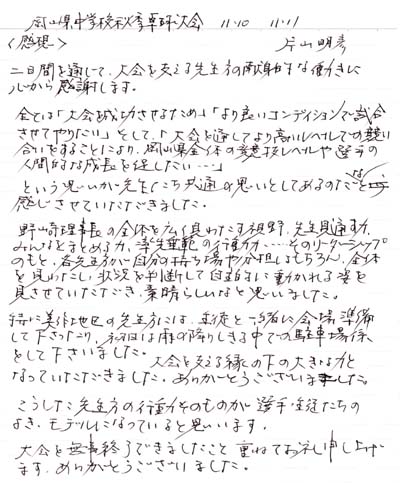 岡山県中学校秋季卓球大会 11/10 11/11
〈感想〉 片山明彦
二日間を通じて、大会を支える先生方の献身的な働きに
心から感謝します。
全ては「大会を成功させるため」「より良いコンディションで試合
させてやりたい」そして、「大会を通してより高いレベルでの競い
合いをすることにより、岡山県全体の競技レベルや選手の
人間的な成長を促したい…」
という思いが先生方共通の思いとしてあるのだなと
感じさせていただきました。
野崎理事長の全体を広く見わたす視野、先を見通す力、
みんなをまとめる力、率先垂範の行動力……そのリーダーシップ
のもと、各先生方が自分の持ち場や分担はもちろん、全体
を見わたし、状況を判断して自主的に動かれる姿を
見させていただき、素晴らしいなと思いました。
特に美作地区の先生方には、生徒と一緒に会場準備
して下さったり、初日は雨の降りしきる中での駐車場係
をして下さいました。 大会を支える縁の下の大きな力と
なっていただきました。ありがとうございました。
こうした先生方の行動そのものが選手・生徒たちの
よき、モデルになっていると思います。
大会を無事終了できましたこと 重ねてお礼申し上げ
ます。ありがとうございました。